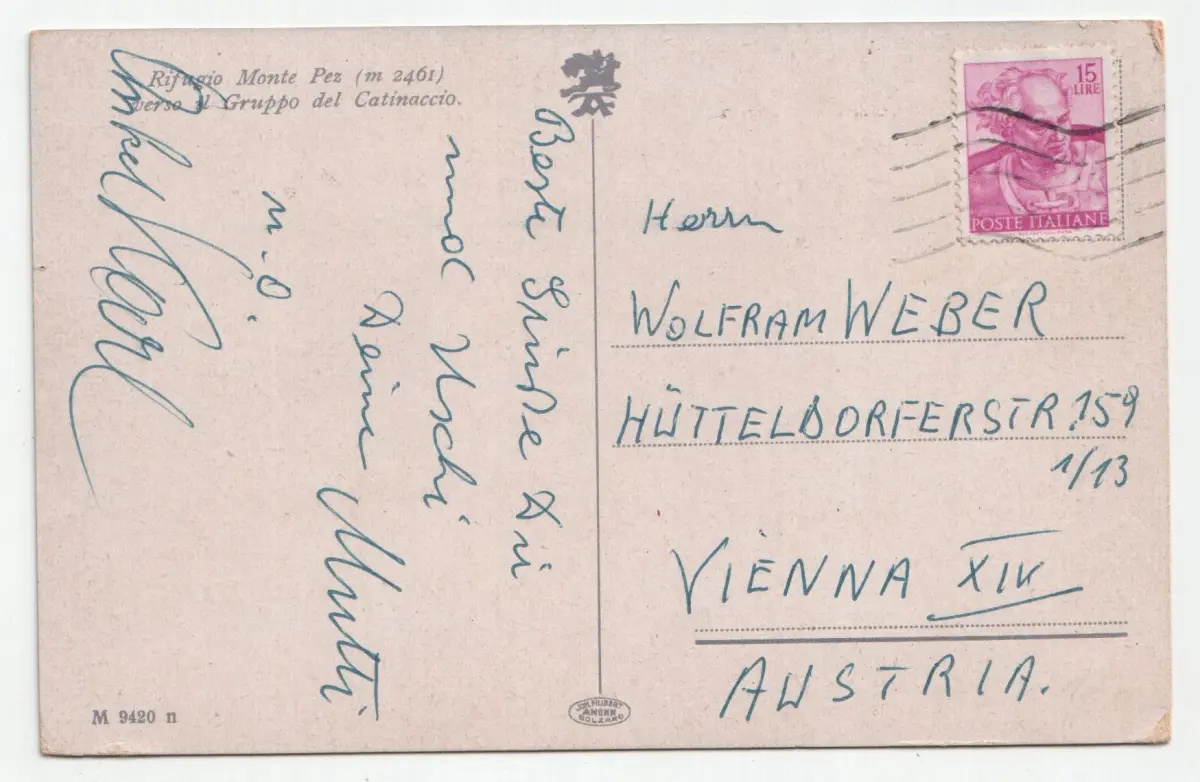 Rifugio Monte Pez (m 2461)
verso il Gruppo del Catinaccio.
Beste Grüße Dir
und Uschi
Deine Mutti
u. d.
Onkel Karl
15
LIRE
POSTE ITALIANE
Herrn
WOLFRAM WEBER
HÜTTELDORFERSTR. 159
1/13
VIENNA XIV
AUSTRIA.
M 9420 n
JOH. FILIBERT
AMONN
BOLZANO